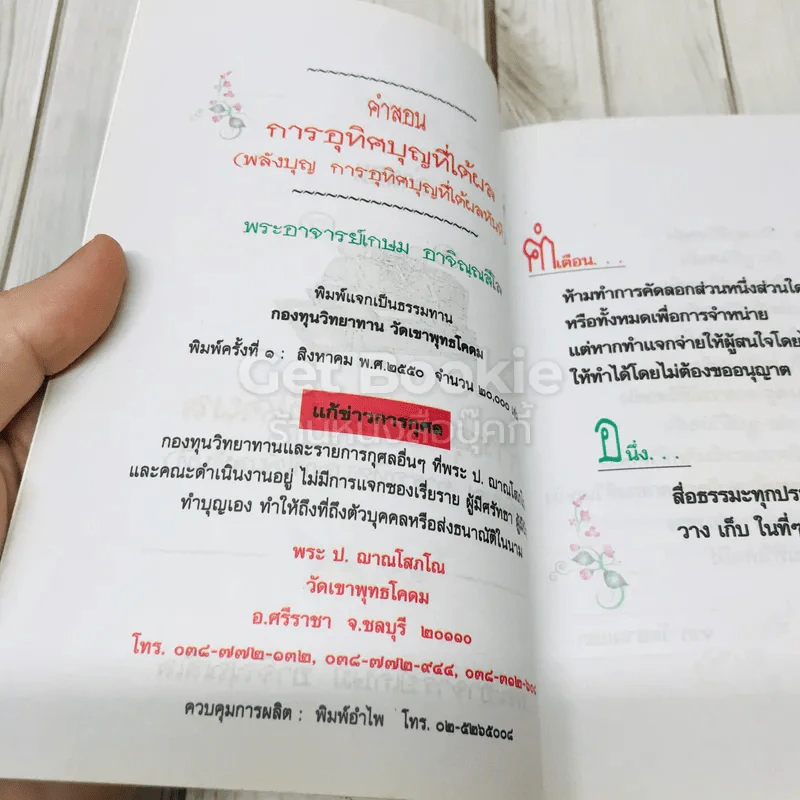 คำสอน
การอุทิศบุญที่ได้ผล
(พลังบุญ การอุทิศบุญที่ได้ผล
พระอาจารย์เกษม อาจิณฺณสีโล
พิมพ์แจกเป็นธรรมทาน
กองทุนวิทยาทาน วัดเขาพุทธโคดม
พิมพ์ครั้งที่ ๑ : สิงหาคม พ.ศ.๒๕๕๐ จำนวน ๒๐,๐๐๐
Get Bookie
ร้านหนังสือบุ๊คกี้
แก้ข่าวการกุศล
กองทุนวิทยาทานและรายการกุศลอื่นๆ ที่พระ ป. ฌาณโสภโณ
และคณะดำเนินงานอยู่ ไม่มีการแจกซองเรี่ยราย ผู้มีศรัทธา
ทำบุญเอง ทำให้ถึงที่ถึงตัวบุคคลหรือส่งธนาณัติในนาม
พระ ป. ฌาณโสภโณ
วัดเขาพุทธโคดม
อ.ศรีราชา จ.ชลบุรี ๒๐๑๑๐
โทร. ๐๓๘-๗๗๒-๑๓๒, ๐๓๘-๗๗๒-๙๔๔, ๐๓๘-๓๑๒-
ควบคุมการผลิต : พิมพ์อำไพ โทร. ๐๒-๕๒๖๕๐๐๘
คำเตือน...
ห้ามทำการคัดลอกส่วนหนึ่งส่วนใด
หรือทั้งหมดเพื่อการจำหน่าย
แต่หากทำแจกจ่ายให้ผู้สนใจโดย
ให้ทำได้โดยไม่ต้องขออนุญาต
อนึ่ง...
สื่อธรรมะทุกประ
วาง เก็บ ในที่ๆ